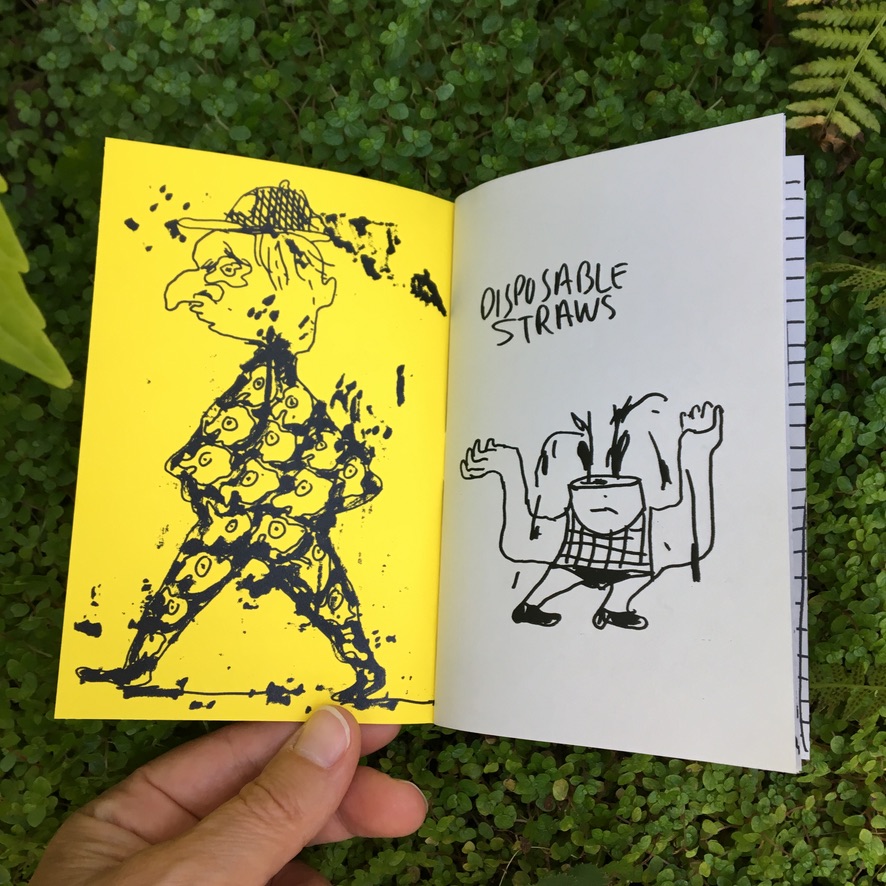 DISPOSABLE
STRAWS